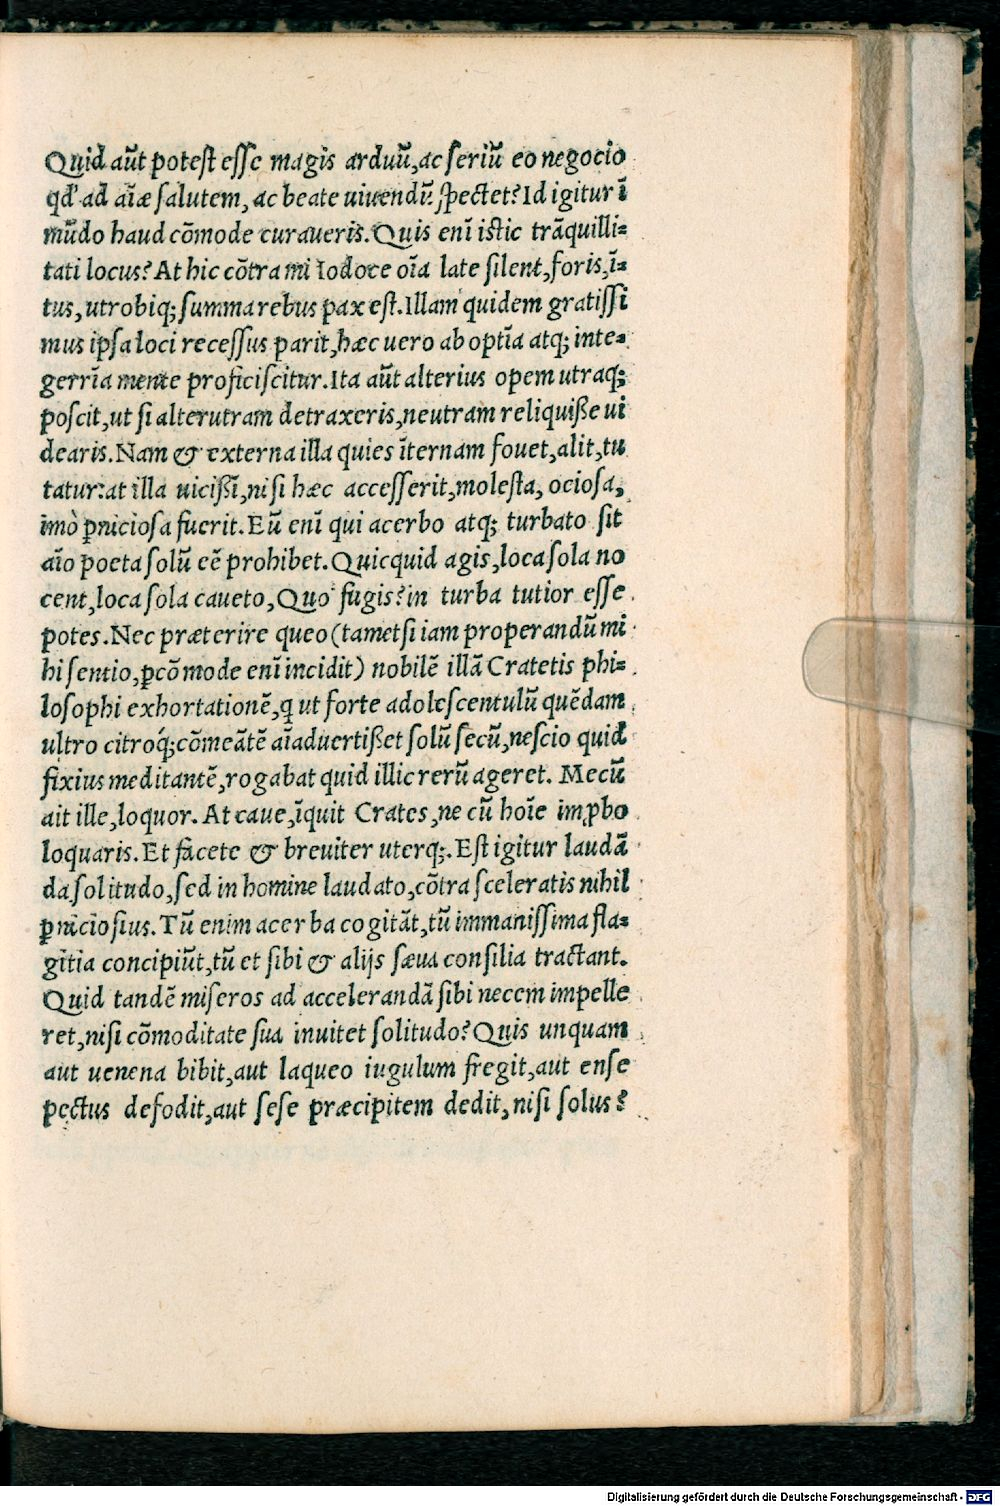 Quid aūt potest esse magis arduū, ac seriū eo negocio
qđ ad aīæ salutem, ac beate uiuendū spectet? Id igitur ī
mūdo haud cōmode curaueris. Quis enī istic trāquilli=
tati locus? At hic cōtra mi Iodoce oīa late silent, foris, ī=
tus, utrobiq; summa rebus pax est. Illam quidem gratissi
mus ipsa loci recessus parit, hæc uero ab optīa atq; inte=
gerrīa mente proficiscitur. Ita aūt alterius opem utraq;
poscit, ut si alterutram detraxeris, neutram reliquiße ui
dearis. Nam & externa illa quies īternam fouet, alit, tu
tatur: at illa uicißī, nisi hæc accesserit, molesta, ociosa,
imò ꝑniciosa fuerit. Eū enī qui acerbo atq; turbato sit
aīo poeta solū eē prohibet. Quicquid agis, loca sola no
cent, loca sola caueto, Quo fugis? in turba tutior esse
potes. Nec præterire queo (tametsi iam properandū mi
hi sentio, ꝑcōmode enī incidit) nobilē illā Cratetis phi=
losophi exhortationē, q ut forte adolescentulū quēdam
ultro citroq́; cōmeātē aīaduertißet solū secū, nescio quid
fixius meditantē, rogabat quid illic rerū ageret. Mecū
ait ille, loquor. At caue, īquit Crates, ne cū hoīe imꝓbo
loquaris. Et facete & breuiter uterq;. Est igitur laudā
da solitudo, sed in homine laudato, cōtra sceleratis nihil
ꝑniciosius. Tū enim acerba cogitāt, tū immanissima fla=
gitia concipiūt, tū et sibi & alijs sæua consilia tractant.
Quid tandē miseros ad accelerandā sibi necem impelle
ret, nisi cōmoditate sua inuitet solitudo? Quis unquam
aut uenena bibit, aut laqueo iugulum fregit, aut ense
pectus defodit, aut sese præcipitem dedit, nisi solus?
Digitalisierung gefördert durch die Deutsche Forschungsgemeinschaft - DFG